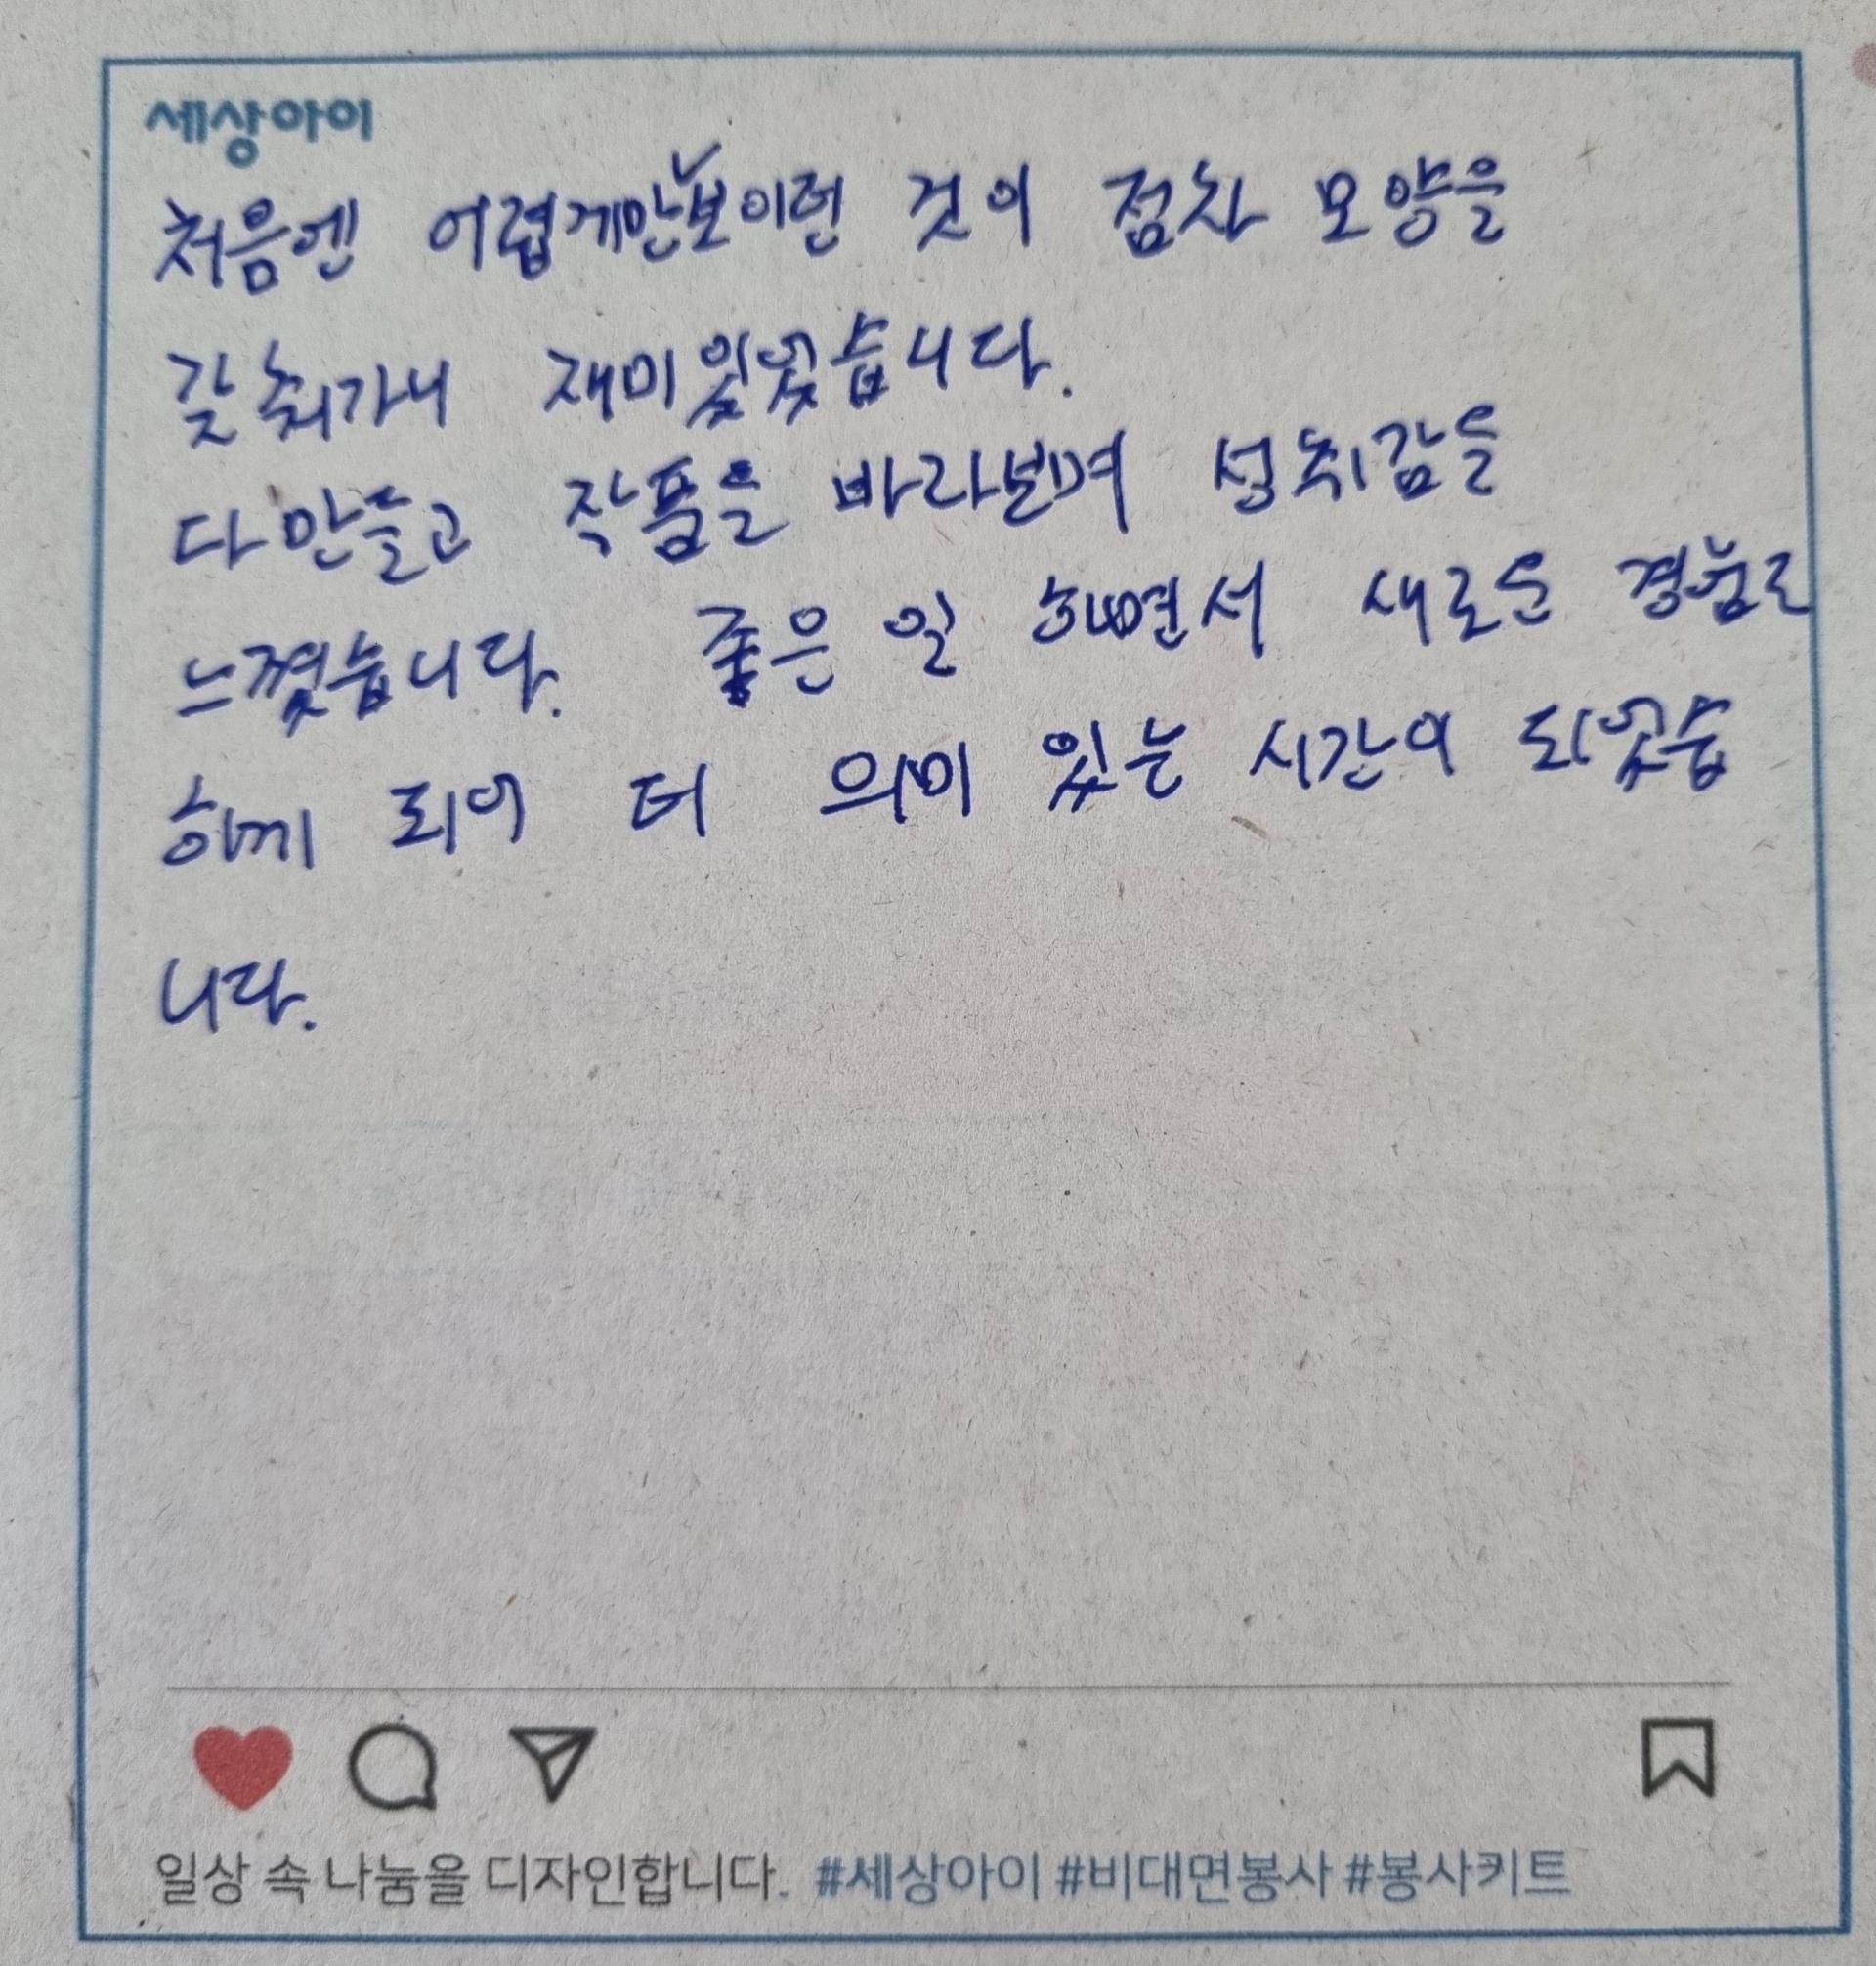 세상아이
처음엔 어렵게만 보이던 것이 점차 모양을
갖춰가니 재미있었습니다.
다 만들고 작품을 바라보며 성취감을
느꼈습니다. 좋은 일 하면서 새로운 경험도
하게 되어 더 의미 있는 시간이 되었습
니다.
일상 속 나눔을 디자인합니다. #세상아이 #비대면봉사 #봉사키트